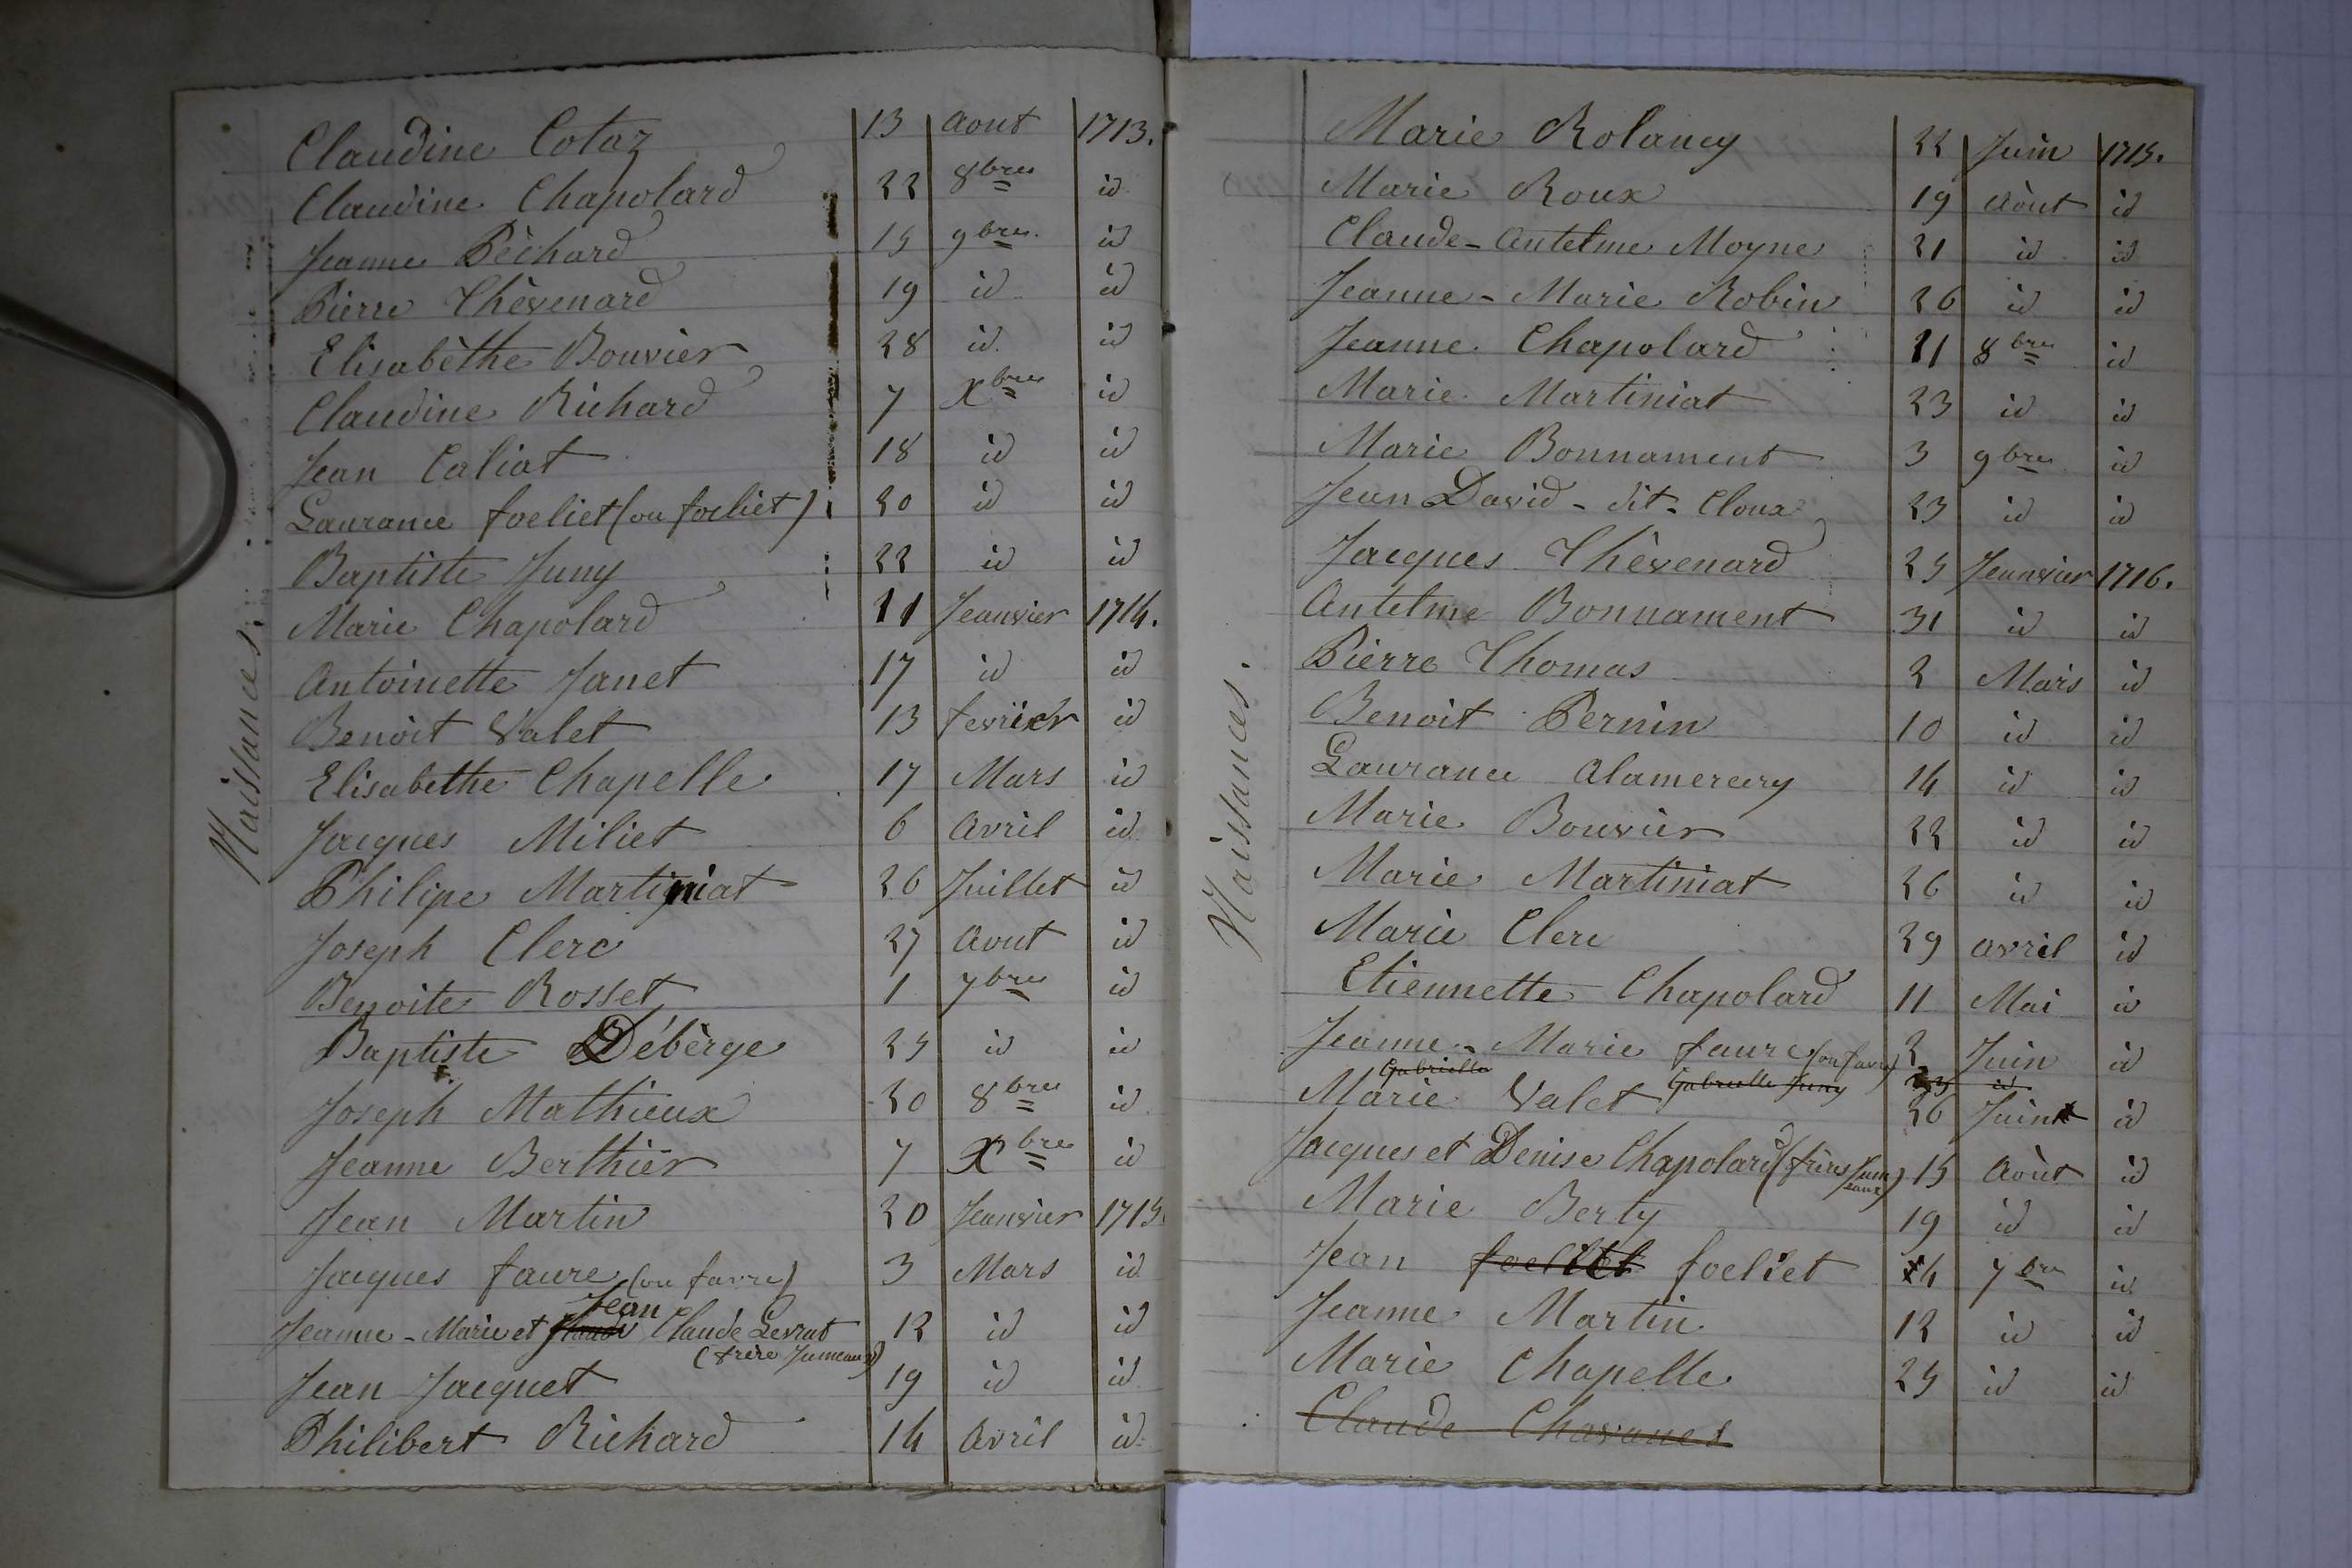 Naissances.
Claudine Cotaz 13 aout 1713.
Claudine Chapolard 22 8bre id
Jeanne Péchard 15 9bre id
Pierre Thèvenard 19 id id
Elisabèthe Bouvier 28 id id
Claudine Richard 7 Xbre id
Jean Caliat 18 id id
Laurance foeliet (ou foeliet) 20 id id
Baptiste Juny 22 id id
Marie Chapolard 11 Jeanvier 1714.
Antoinette Janet 17 id id
Benoit Valet 13 fevrier id
Elisabethe Chapelle 17 Mars id
Jacques Miliet 6 Avril id
Philipe Martiniat 26 Juillet id
Joseph Clerc 27 Aout id
Benoite Rosset 1 7bre id
Baptiste Débèrge 25 id id
Joseph Mathieux 20 8bre id
Jeanne Berthier 7 Xbre id
Jean Martin 20 Jeanvier 1715
Jacques faure (ou favre) 3 Mars id
Jean
Jeanne-Marie et Claude Levrat 12 id id
(frère Jumeaux)
Jean Jacquet 19 id id
Philibert Richard 14 Avril id
Naissances.
Marie Rolancy 22 Juin 1715.
Marie Roux 19 Aòut id
Claude-Antelme Moyne 21 id id
Jeanne-Marie Robin 26 id id
Jeanne Chapolard 11 8bre id
Marie Martiniat 23 id id
Marie Bonnament 3 9bre id
Jean David-dit-Cloux 23 id id
Jacques Thèvenard 25 Jeanvier 1716.
Antelme Bonnament 31 id id
Pierre Thomas 2 Mars id
Benoit Pernin 10 id id
Laurance Alamercery 14 id id
Marie Bouvier 22 id id
Marie Martiniat 26 id id
Marie Clerc 29 avril id
Etiennette Chapolard 11 Mai id
Jeanne-Marie faure (ou favre) 2 Juin id
Gabrielle Gabrielle Juny 23 id
Marie Valet 26 Juin id
Jacques et Denise Chapolard (frères Jumeaux) 15 Aòut id
Marie Berty 19 id id
Jean foeliet foeliet 4 7bre id
Jeanne Martin 12 id id
Marie Chapelle 25 id id
Claude Chavanes